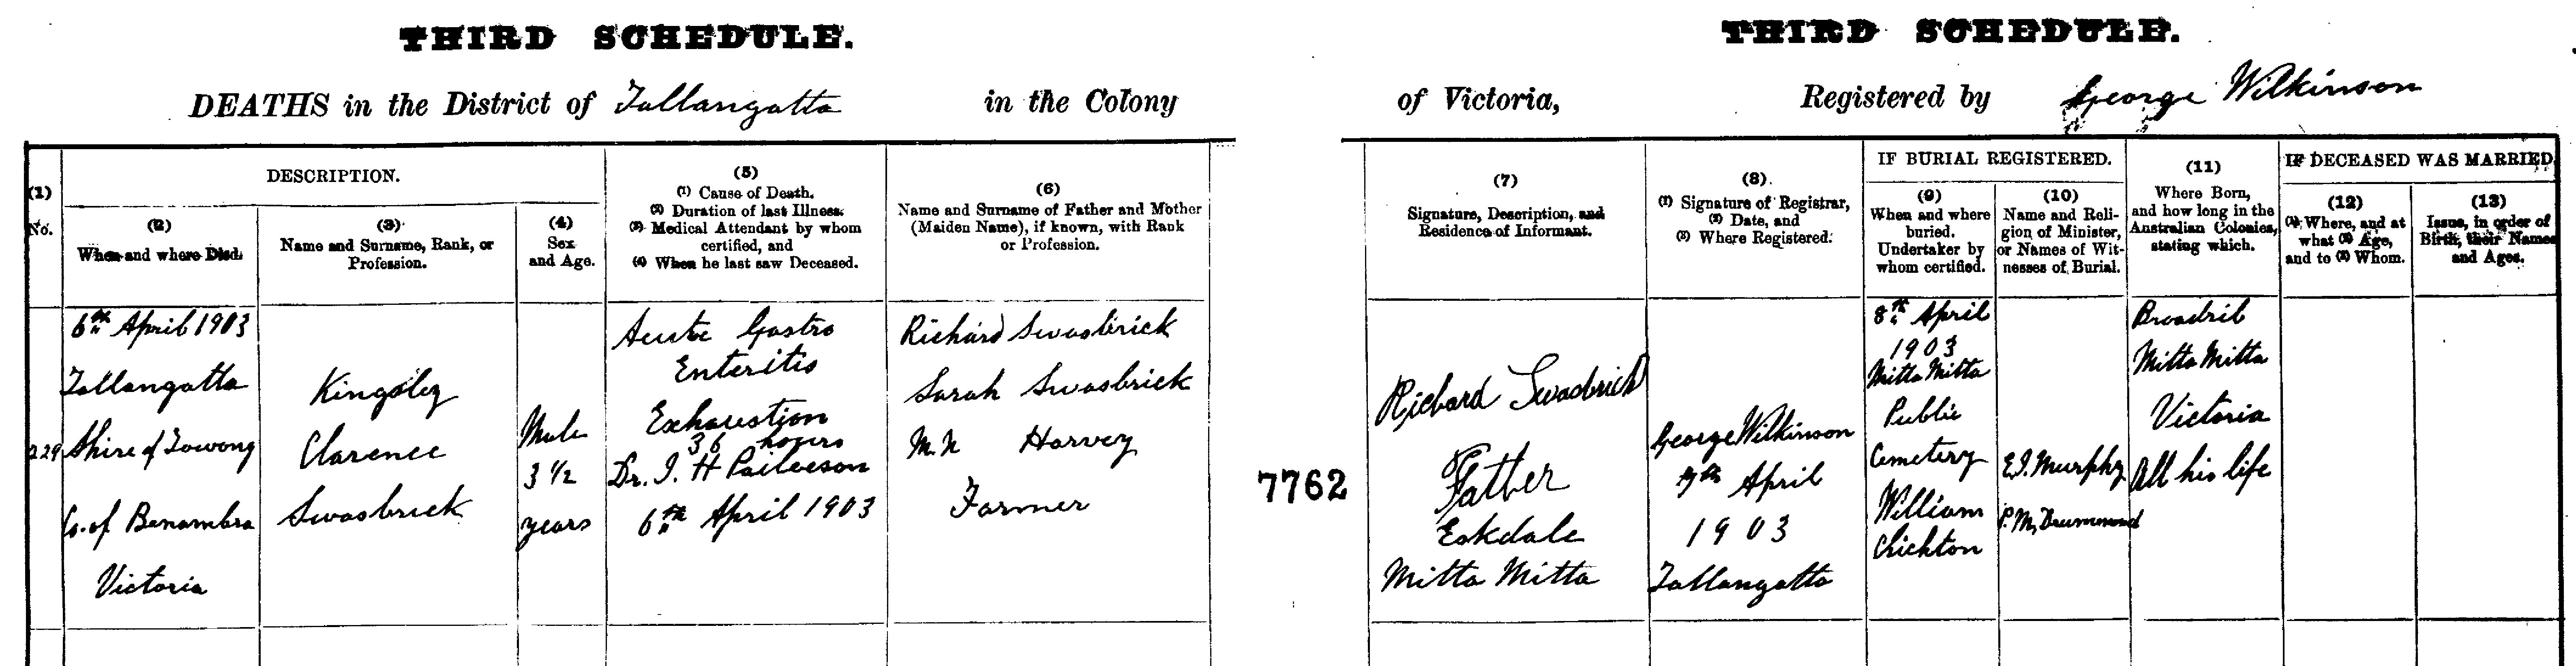 THIRD SCHEDULE.
DEATHS in the District of Tallangatta in the Colony
(1)
No.
DESCRIPTION.
(2)
When and where Died.
(3)
Name and Surname, Rank, or
Profession.
(4)
Sex
and Age.
(5)
(1) Cause of Death.
(2) Duration of last Illness.
(3) Medical Attendant by whom
certified, and
(4) When he last saw Deceased.
(6)
Name and Surname of Father and Mother
(Maiden Name), if known, with Rank
or Profession.
229
6th April 1903
Tallangatta
Shire of Towong
Co. of Benambra
Victoria
Kingsley
Clarence
Swasbrick
Male
3 1/2
years
Acute Gastro
Enteritis
Exhaustion
36 hours
Dr. J. H
6th April 1903
Richard Swasbrick
Sarah Swasbrick
M.N Harvey
Farmer
7762
THIRD SCHEDULE.
of Victoria, Registered by George Wilkinson
(7)
Signature, Description, and
Residence of Informant.
(8)
(1) Signature of Registrar,
(2) Date, and
(3) Where Registered.
IF BURIAL REGISTERED.
(9)
When and where
buried.
Undertaker by
whom certified.
(10)
Name and Reli-
gion of Minister,
or Names of Wit-
nesses of Burial.
(11)
Where Born,
and how long in the
Australian Colonies,
stating which.
IF DECEASED WAS MARRIED.
(12)
(1) Where, and at
what (2) Age,
and to (3) Whom.
(13)
Issue, in order of
Birth, their Names
and Ages.
Richard Swasbrick
Father
Eskdale
Mitta Mitta
George Wilkinson
9th April
1903
Tallangatta
8th April
1903
Mitta Mitta
Public
Cemetery
William
Chichton
E.J. Murphy
P. M. Drummond
Broadrib
Mitta Mitta
Victoria
All his life